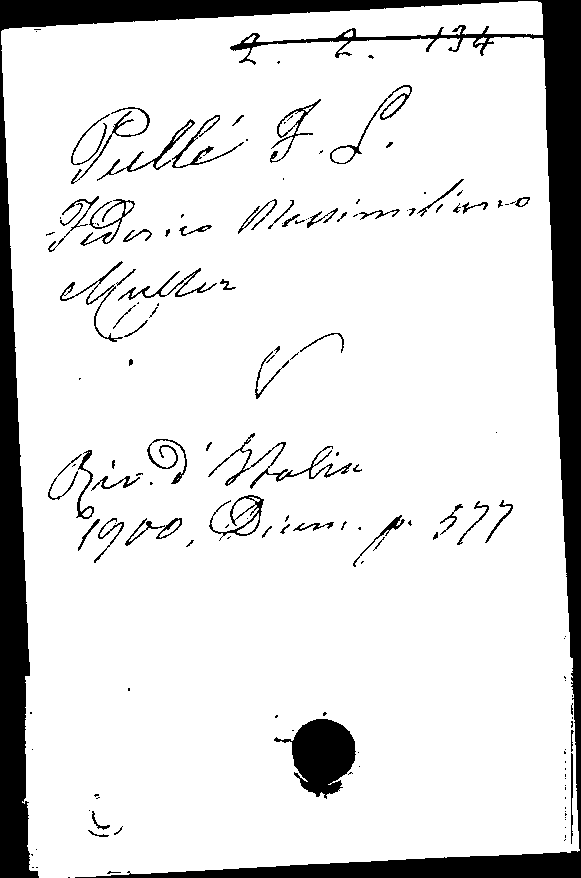 2. 2. 134
Pullé F. L.
Federico Massimiliano
Müller
Riv. d'Italia
1900, Dicem. p. 577